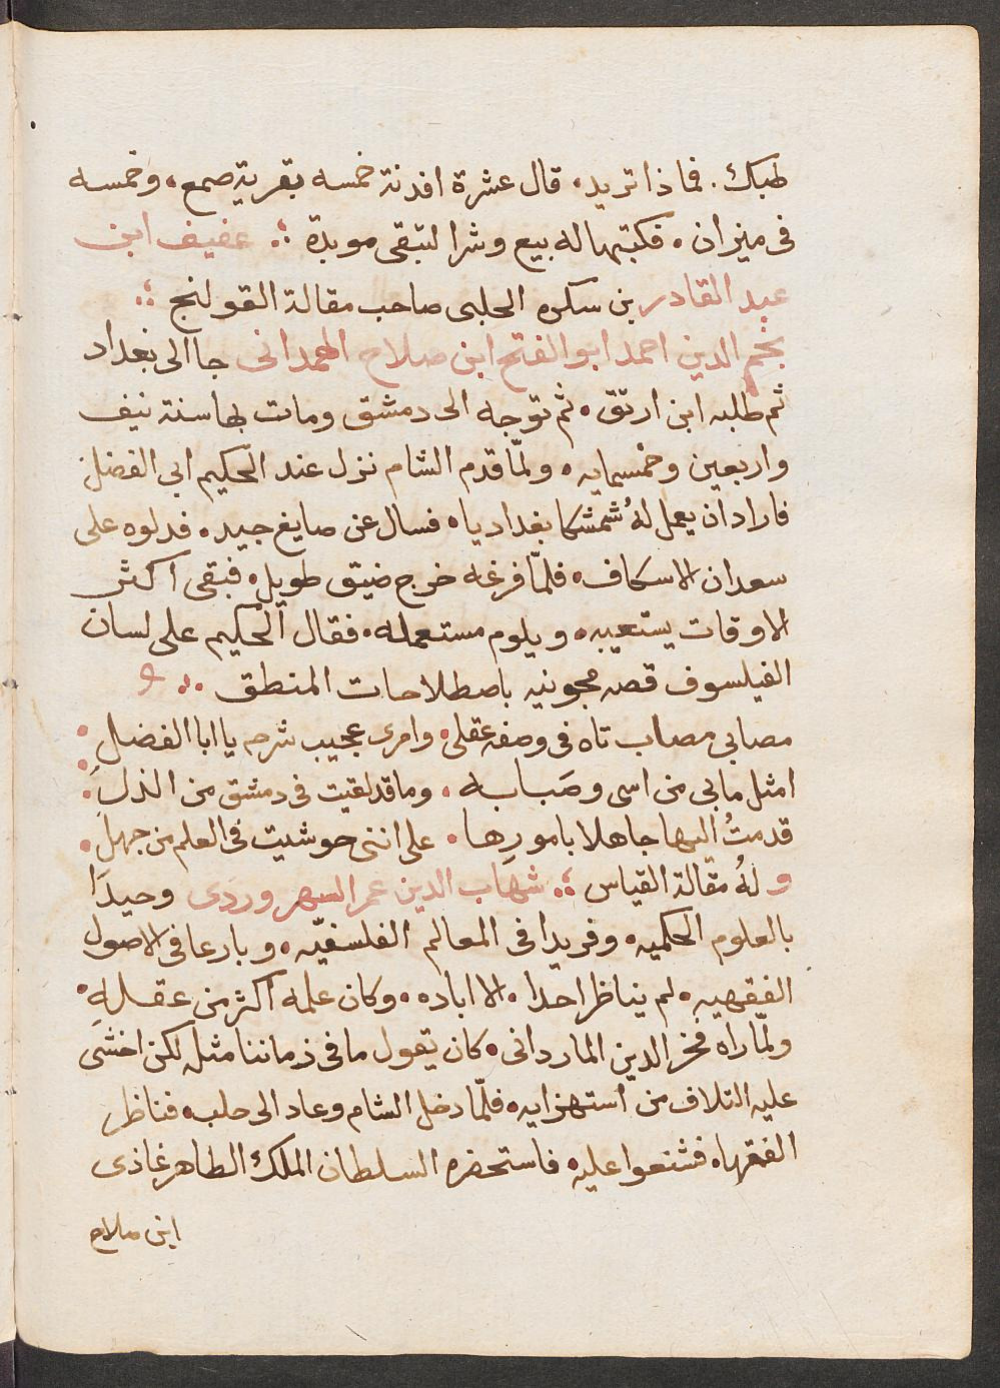 طبك. فماذا تريد. قال عشرة افدنة خمسه بقرية صمع. وخمسه
فى ميزان. فكتبتها له بيع وشرا لتبقى موبدة ؞ عفيف ابن
عبد القادر بن سكره الحلبى صاحب مقالة القولنج ؞
نجم الدين احمد ابو الفتح ابن صلاح الهمدانى جا الى بغداد
ثم طلبه ابن ارتق. ثم توجه الى دمشق ومات بها سنة نيف
واربعين وخمسمايه. ولمّا قدم الشام نزل عند الحكيم ابى الفضل
فاراد ان يعمل لهُ شمشكا بغداديا. فسال عن صايغ جيد. فدلوه على
سعدان الاسكاف. فلمّا فرغه خرج ضيق طويل. فبقى اكثر
الاوقات يستعيبه. ويلوم مستعمله. فقال الحكيم على لسان
الفيلسوف قصه مجونيه باصطلاحات المنطق ؞
مصابى مصاب تاه فى وصفه عقلى. وامرى عجيب شرحه يا ابا الفضل.
امثل ما بى من اسى وصَبابه. وما قد لقيت فى دمشق من الذلَ.
قدمتُ اليها جاهلا بامورِها. على اننى حوشيت فى العلم من جهل.
ولهُ مقالة القياس ؞ شهاب الدين عمر السهروردى وحيدًا
بالعلوم الحكميه. وفريدا فى المعالم الفلسفيّه. وبارعا فى الاصول
الفقهيه. لم يناظر احدا. الا اباده. وكان علمه اكثر من عقله.
ولمّا راه فخر الدين الماردانى. كان يقول ما فى زماننا مثله لكن اخشى
عليه التلاف من استهزايه. فلمّا دخل الشام وعاد الى حلب. فناظر
الفقها. فشنعوا عليه. فاستحضره السلطان الملك الطاهر غازى
ابن صلاح